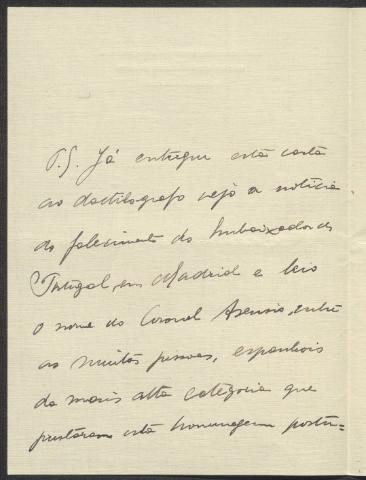 P.S. Já entregue esta carta
ao dactilografo vejo a noticia
do falecimento do Embaixador de
Portugal, em Madrid e leio
o nome do Coronel Asensio, entre
as muitas pessoas, espanhois
da mais alta categoria que
prestaram esta homenagem postu=